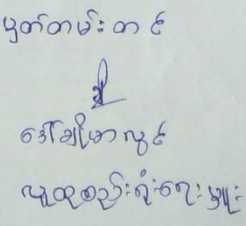 မှတ်တမ်းတင်
ဒေါ်ချိုမာလွင်
လူထုစည်းရုံးရေးမှူး